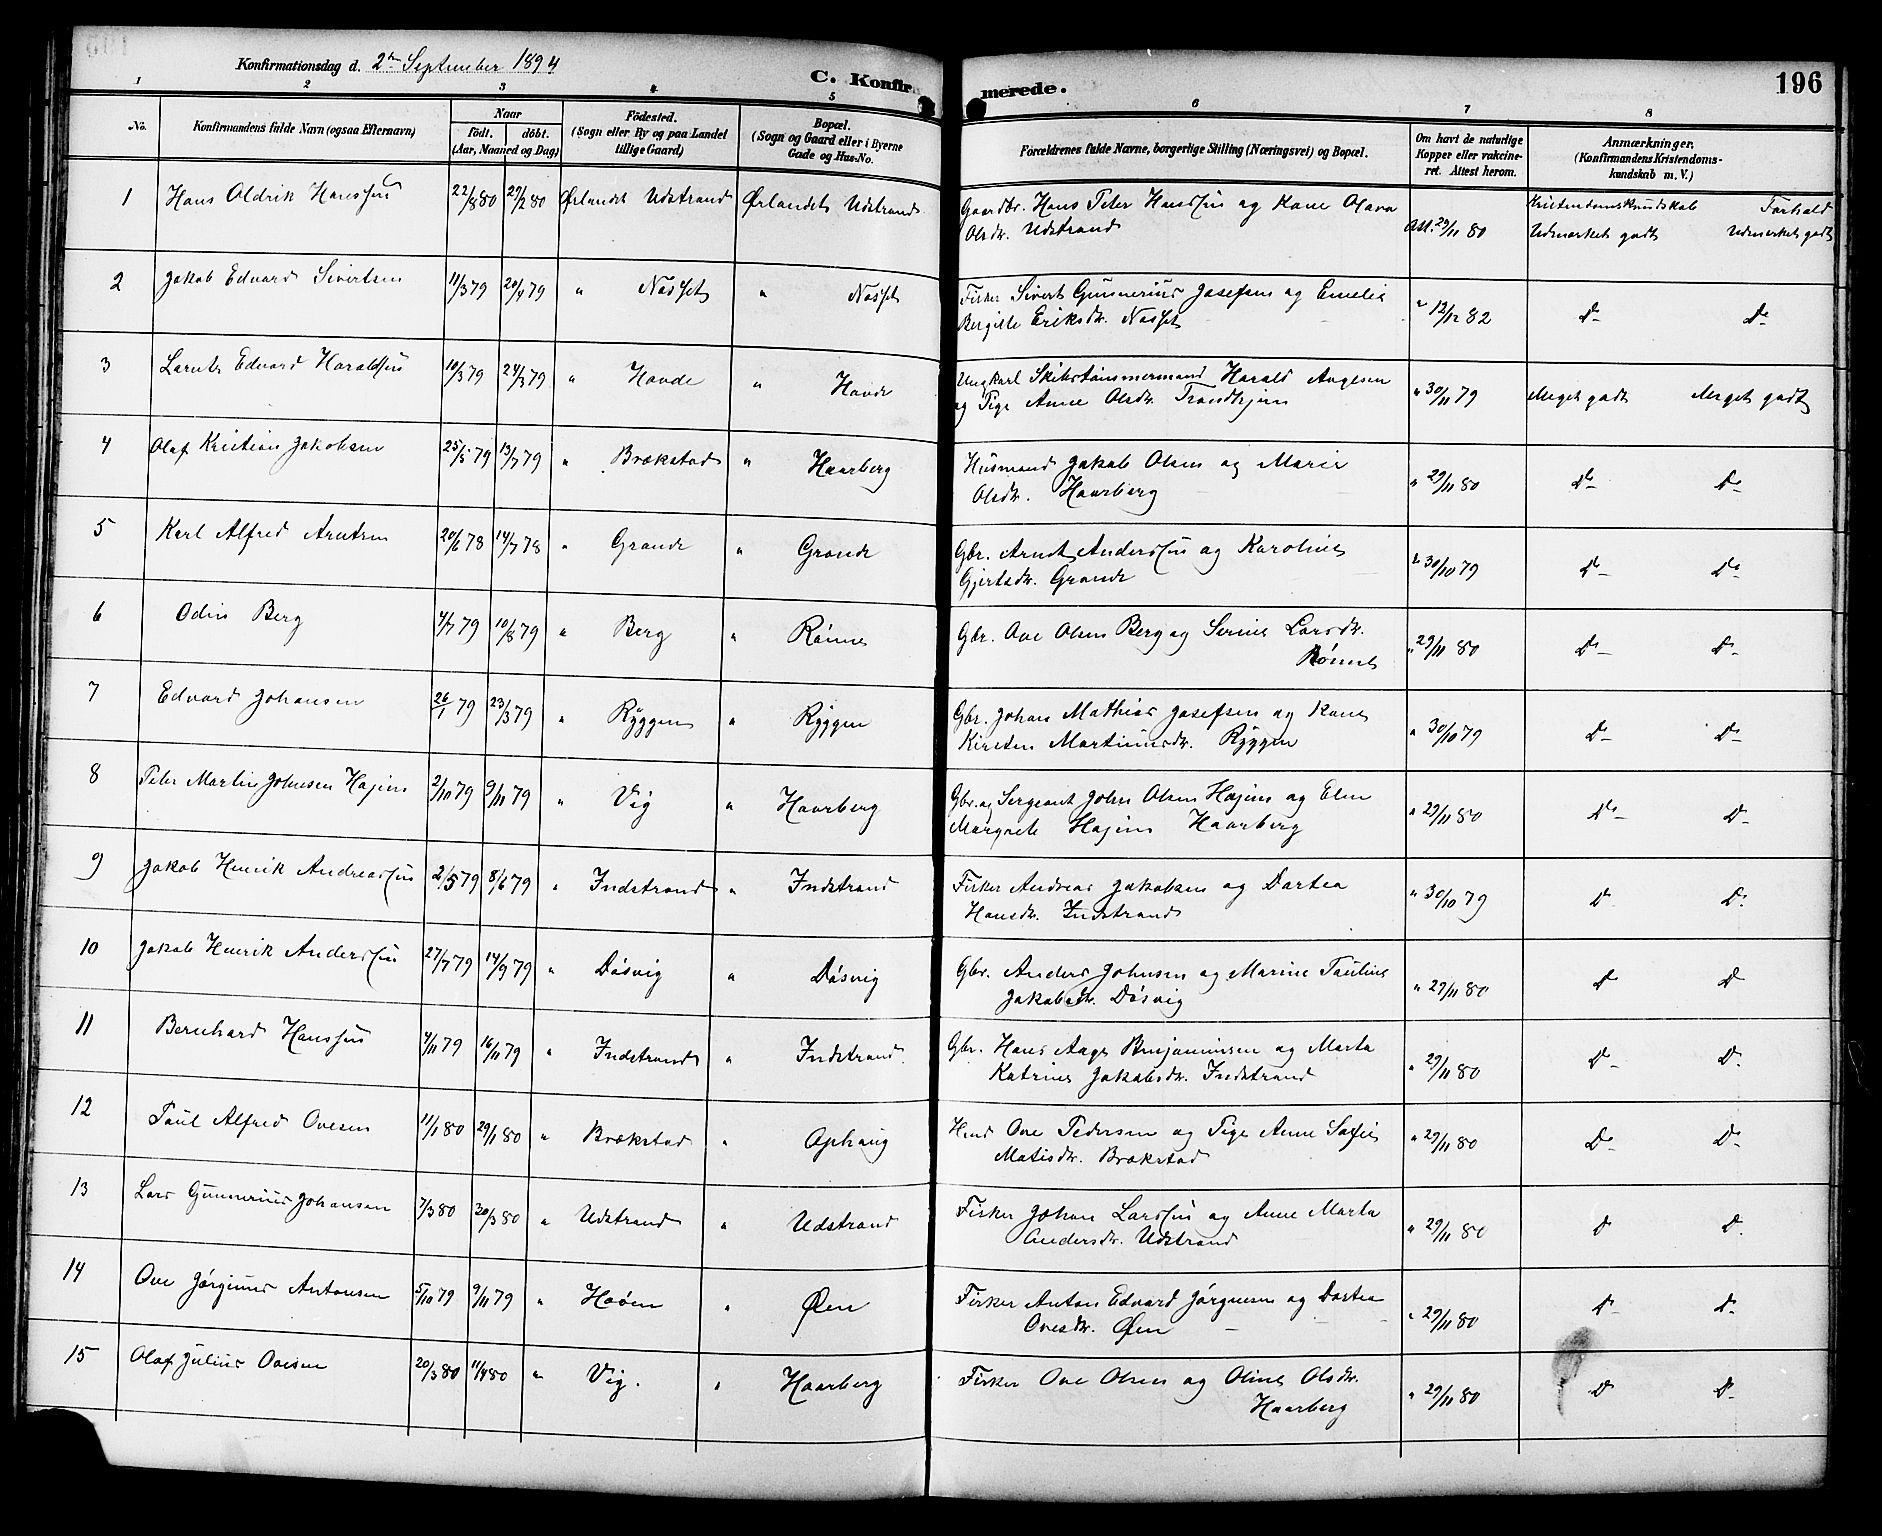 Konfirmationsdag d. 2den September 1894
C. Konfirmerede.
196
1 2 3 4 5 6 7 8
No. Konfirmandens fulde Navn (ogsaa Efternavn) Naar født. døbt. (Aar, Maaned og Dag) Fødested. (Sogn eller By og paa Landet tillige Gaard) Bopæl. (Sogn og Gaard eller i Byerne Gade og Hus-No. Forældrenes fulde Navne, borgerlige Stilling (Næringsvei) og Bopæl. Om havt de naturlige Kopper eller vakcineret. Attest herom. Anmærkninger. (Konfirmandens Kristendomskundskab m. V.)
1 Hans Oldrik Hanssen 22/8 80 29/2 80 Ørlandet Udstrand Ørlandet Udstrand Gaardbr. Hans Peter Hanssen og Kane Olava Att. 29/11 80 Kristendomskundskab Forhold
Olsdr. Udstrand Udmærket godt Udmærket godt
2 Jakob Edvard Sivertsen 11/3 79 20/4 79 " Næsset " Næsset Fisker Sivert Gunnerius Josefsen og Emelie " 12/12 82 Do Do
Bergitte Eriksdr. Næsset
3 Lornts Edvard Haraldsen 10/3 79 24/3 79 " Hovde " Hovde Ungkarl Skibstømmermand Harald Aagesen " 30/11 79 Meget godt Meget godt
og Pige Anne Olsdr. Trondhjem
4 Olaf Kristian Jakobsen 25/5 79 13/7 79 " Brækstad " Haarberg Husmand Jakob Olsen og Marie " 29/11 80 Do Do
Olsdr. Haarberg
5 Karl Alfred Arntsen 20/6 78 14/7 78 " Grande " Grande Gbr. Arndt Anderssen og Karoline " 30/10 79 Do Do
Gjertsdr. Grande
6 Odin Berg 4/7 79 10/8 79 " Berg " Rønne Gbr. Ove Olsen Berg og Serine Larsdr. " 29/11 80 Do Do
Rønne
7 Edvard Johansen 26/1 79 23/3 79 " Ryggen " Ryggen Gbr. Johan Mathias Josefsen og Kane " 30/10 79 Do Do
Kirsten Martinusdr. Ryggen
8 Peter Martin Johnsen Hagen 2/10 79 9/11 79 " Vig " Haarberg Gbr. og Sergeant John Olsen Hagen og Elen " 29/11 80 Do Do
Margrete Hagen Haarberg
9 Jakob Henrik Andreassen 2/5 79 8/6 79 " Indstrand " Indstrand Fisker Andreas Jakobsen og Dortea " 30/10 79 Do Do
Hansdr. Indstrand
10 Jakob Henrik Anderssen 27/7 79 14/9 79 " Døsvig " Døsvig Gbr. Anders Johnsen og Marine Pauline " 29/11 80 Do Do
Jakobsdr. Døsvig
11 Bernhard Hanssen 4/11 79 16/11 79 " Indstrand " Indstrand Gbr. Hans Aage Benjaminsen og Marta " 29/11 80 Do Do
Katrine Jakobsdr. Indstrand
12 Paul Alfred Ovesen 11/1 80 29/1 80 " Brækstad " Ophaug Hmd Ove Pedersen og Pige Anne Sofie " 29/11 80 Do Do
Matisdr. Brækstad
13 Lars Gunnerius Johansen 7/3 80 30/3 80 " Udstrand " Udstrand Fisker Johan Larssen og Anne Marta " 29/11 80 Do Do
Andersdr. Udstrand
14 Ove Jørginus Antonsen 5/10 79 9/11 79 " Hoøen " Øen Fisker Anton Edvard Jørgensen og Dortea " 29/11 80 Do Do
Ovesdr. Øen
15 Olaf Julius Ovesen 20/3 80 11/4 80 " Vig. " Haarberg Fisker Ove Olsen og Oline Olsdr. " 29/11 80 Do Do
Haarberg